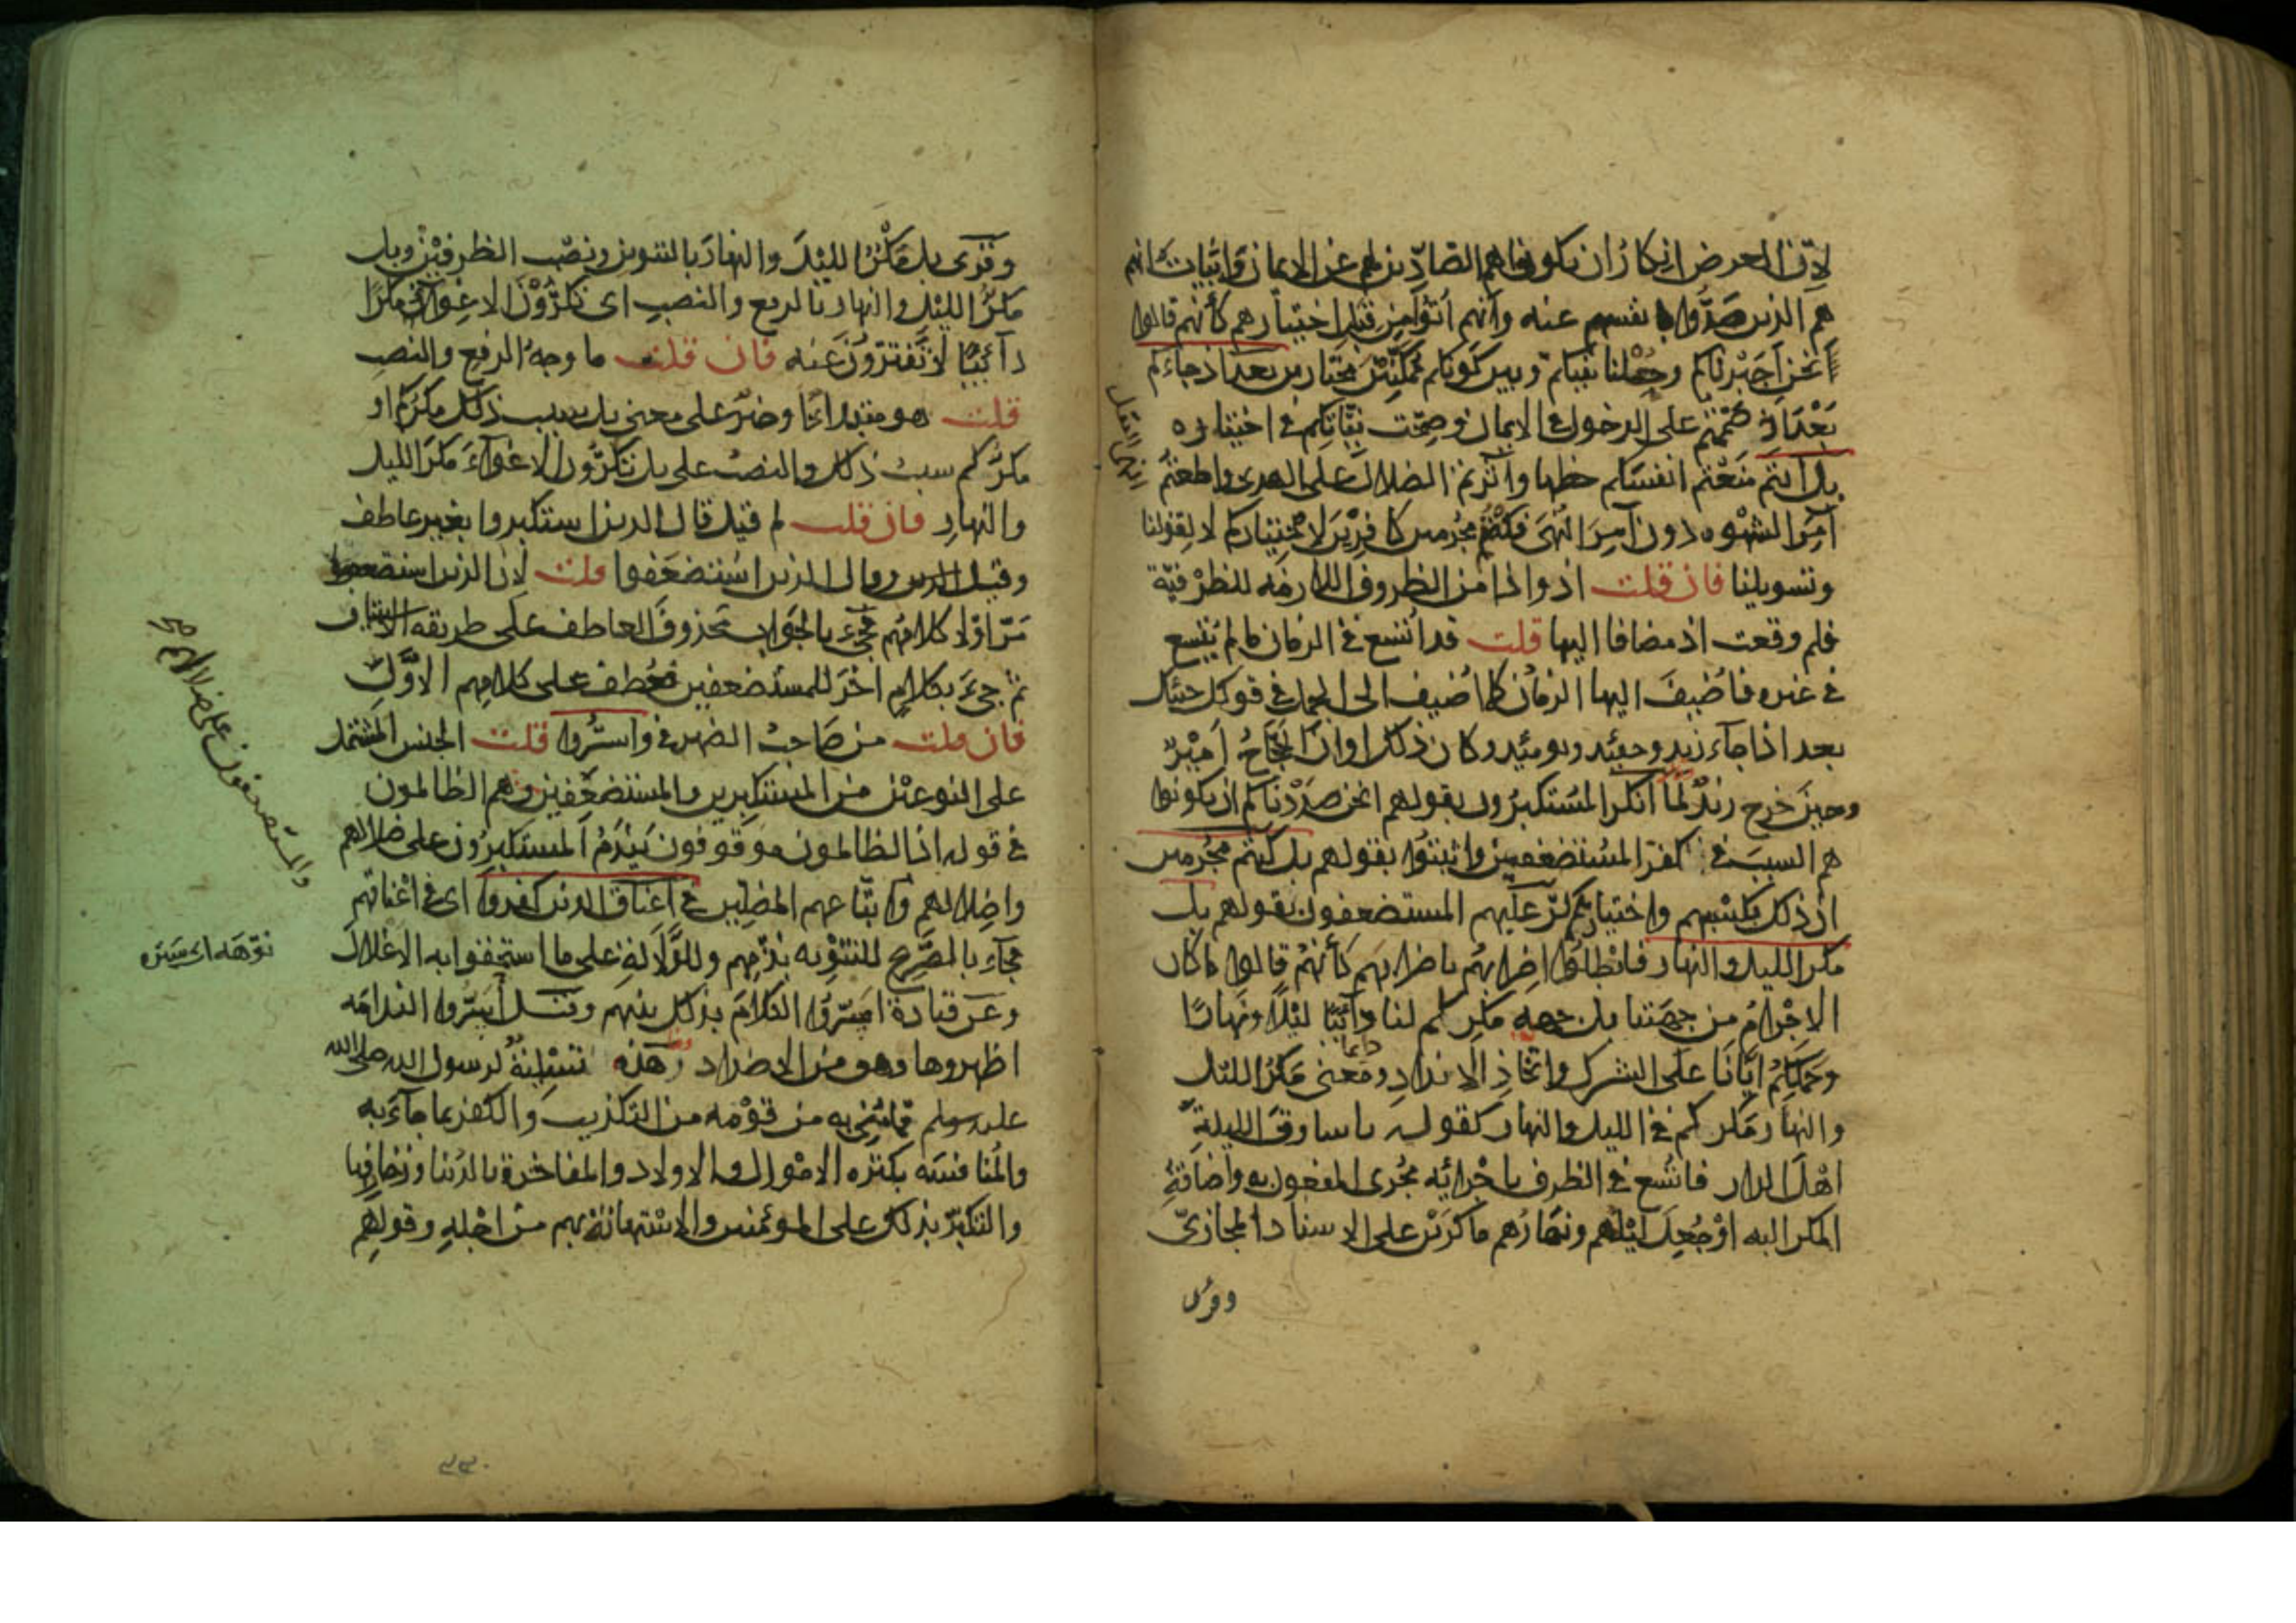 لان الغرض انكار ان يكونوا هم الصادين لهم عن الايمان واثبات انهم
هم الذين صدوا بانفسهم عنه وانهم اتوا من قبل اختيارهم كأنهم قالوا
انحن اجبرناكم وحلنا بينكم وبين كونكم ممكنين مختارين بعد اذ جاءكم
بعد ان صممتم على الدخول في الايمان وصحت نياتكم في اختياره
بل انتم منعتم انفسكم حظها واثرتم الضلال على الهدى واطعتم
آمر الشهوه دون آمر النهى فكنتم مجرمين كافرين لاختياركم لا لقولنا
وتسويلنا فان قلت اذ واذا من الظروف اللازمه للظرفية
فلم وقعت اذ مضافا اليها قلت قد اتسع في الزمان ما لم يتسع
في غيره فاضيف اليها الزمان كما اضيف الى الجمل في قولك جئتك
بعد اذا جاء زيد وحينئذ ويومئذ وكان ذلك اوان الحجاج امير
وحين خرج زيد لما انكر المستكبرون بقولهم انحن صددناكم ان يكونوا
هم السبب في كفر المستضعفين واثبتوا بقولهم بل كنتم مجرمين
ان ذلك بكسبهم واختيارهم كر عليهم المستضعفون بقولهم بل
مكر الليل والنهار فابطلوا اضرابهم باضرابهم كأنهم قالوا ما كان
الاجرام من جهتنا بل من جهه مكركم لنا دائبا ليلا ونهارا
دايما
وحملكم ايانا على الشرك واتخاذ الانداد ومعنى مكر الليل
والنهار مكركم في الليل والنهار كقوله يا سارق الليلة
اهل الدار فاتسع في الظرف باجرائه مجرى المفعول به واضافة
المكر اليه او جعل ليلهم ونهارهم ماكرين على الاسناد المجازي
وقرى
وقرى بل مكر الليل والنهار بالتنوين ونصب الظرفين وبل
مكر الليل والنهار بالرفع والنصب اى تكرون الاغواء مكرا
دآئبا لا تفترون عنه فان قلت ما وجه الرفع والنصب
قلت هو مبتدا او خبر على معنى بل سبب ذلك مكركم او
مكركم سبب ذلك والنصب على بل تكرون الاغواء مكر الليل
والنهار فان قلت لم قيل قال الذين استكبروا بغير عاطف
وقيل وقال الذين استضعفوا قلت لان الذين استضعفوا
مر اولا كلامهم فجىء بالجواب محذوف العاطف على طريقه الاستيناف
ثم جىء بكلام اخر للمستضعفين فعطف على كلامهم الاول
فان قلت من صاحب الضمير في واسروا قلت الجنس المشتمل
على النوعين من المستكبرين والمستضعفين وهم الظالمون
في قوله اذ الظالمون موقوفون يندم المستكبرون على ضلالهم
واضلالهم واتباعهم المضلين في اعناق الذين كفروا اى في اعناقهم
فجاء بالصريح للتنويه بذمهم وللدلالة على ما استحقوا به الاغلال
وعن قتادة اسروا الكلام بذلك بينهم وقيل أسروا الندامه
اظهروها وهو من الاضداد هذه تسلية لرسول الله صلى الله
عليه وسلم مما منى به من قومه من التكذيب والكفر بما جآء به
والمنافسه بكثره الاموال والاولاد والمفاخرة بالدنيا وزخارفها
والتكبر بذلك على المومنين والاستهانة بهم من اجله وقولهم
والمستضعفون على ضلالهم
نوهه اى